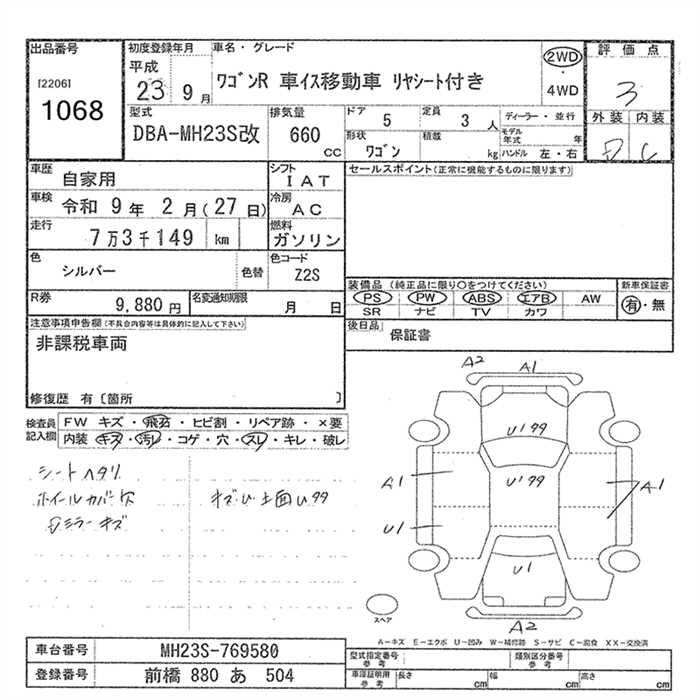 出品番号
[2206]
1068
初度登録年月
平成
23 9 月
車名・グレード
ワゴンR 車イス移動車 リヤシート付き
2WD
・
4WD
評価点
3
外装 内装
D C
型式
DBA-MH23S改
排気量
660
CC
ドア
5
定員
3 人
形状
ワゴン
積載
kg
ディーラー・並行
モデル
年式 年
ハンドル 左・右
車歴
自家用
シフト
IAT
車検
令和 9年 2月(27日)
冷房
AC
走行
7万3千149 km
燃料
ガソリン
色
シルバー
色替
色コード
Z2S
R券
9,880 円
名変通知期限
月 日
セールスポイント(正常に機能するものに限ります)
装備品 (純正品に限り○をつけてください)
PS PW ABS エアB AW
SR ナビ TV カワ
新車保証書
有・無
後日品
保証書
注意事項申告欄(不具合内容等は具体的に記入して下さい)
非課税車両
修復歴 有〔箇所 〕
検査員
記入欄
FW キズ・飛石・ヒビ割・リペア跡・×要
内装 キズ・汚レ・コゲ・穴・スレ・キレ・破レ
シートヘタリ
ホイールカバー欠
Dミラーキズ
A2
A1
U199
U'99
A1
A1
U1
U1
A2
スペア
A-キズ E-エクボ U-凹み W-補修跡 S-サビ C-腐食 XX-交換済
車台番号
MH23S-769580
登録番号
前橋 880 あ 504
型式指定番号
参考
類別区分番号
参考
車庫証明用
参考
長さ cm
幅 cm
高さ cm